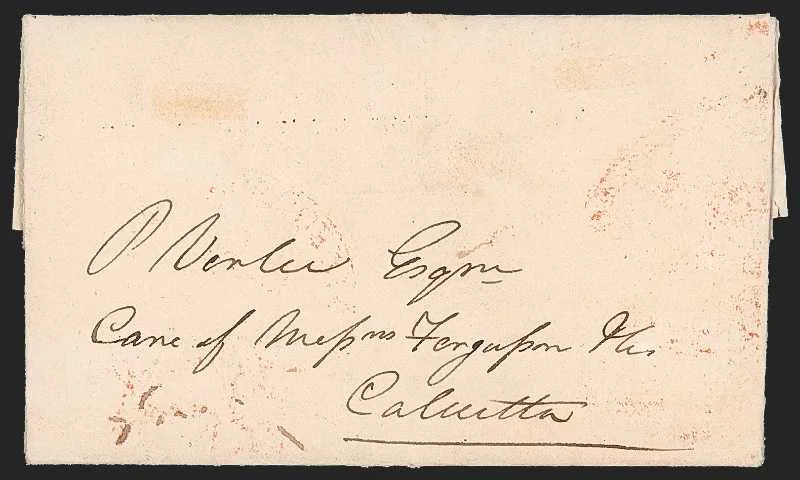 P Vonlee Esqre
Care of Messrs Fergusson &co
Calcutta